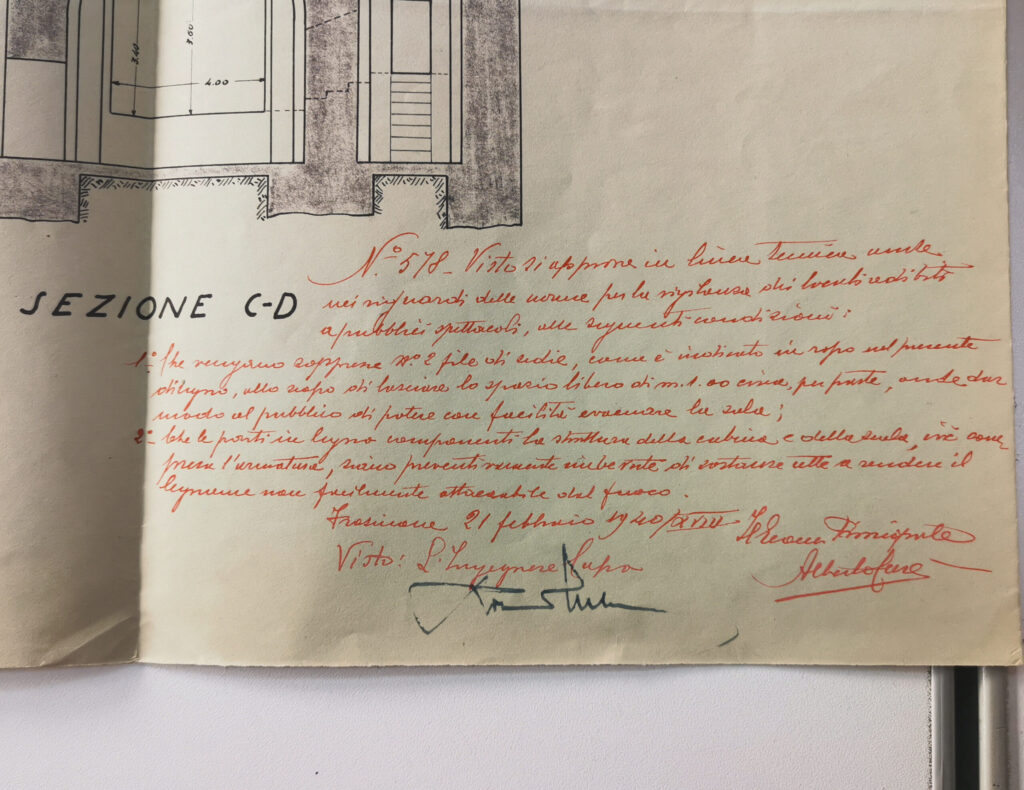 3.40
3.60
4.00
SEZIONE C-D
N.° 578 - Visto si approva in linea tecnica anche
nei riguardi delle norme per la vigilanza dei locali adibiti
a pubblici spettacoli, alle seguenti condizioni:
1° Che vengano soppresse n° 2 file di sedie, come è indicato in rosso nel presente
disegno, allo scopo di lasciare lo spazio libero di m. 1.00 circa, per parte, onde dar
modo al pubblico di potere con facilità evacuare la sala;
2° Che le parti in legno componenti la struttura della cabina e della scala, ivi com-
presa l'armatura, siano preventivamente imbevute di sostanze atte a rendere il
legname non facilmente attaccabile dal fuoco.
Frosinone 21 febbraio 1940/XVIII
Il Geom. Principale
Visto: L'Ingegnere Capo
Alberto